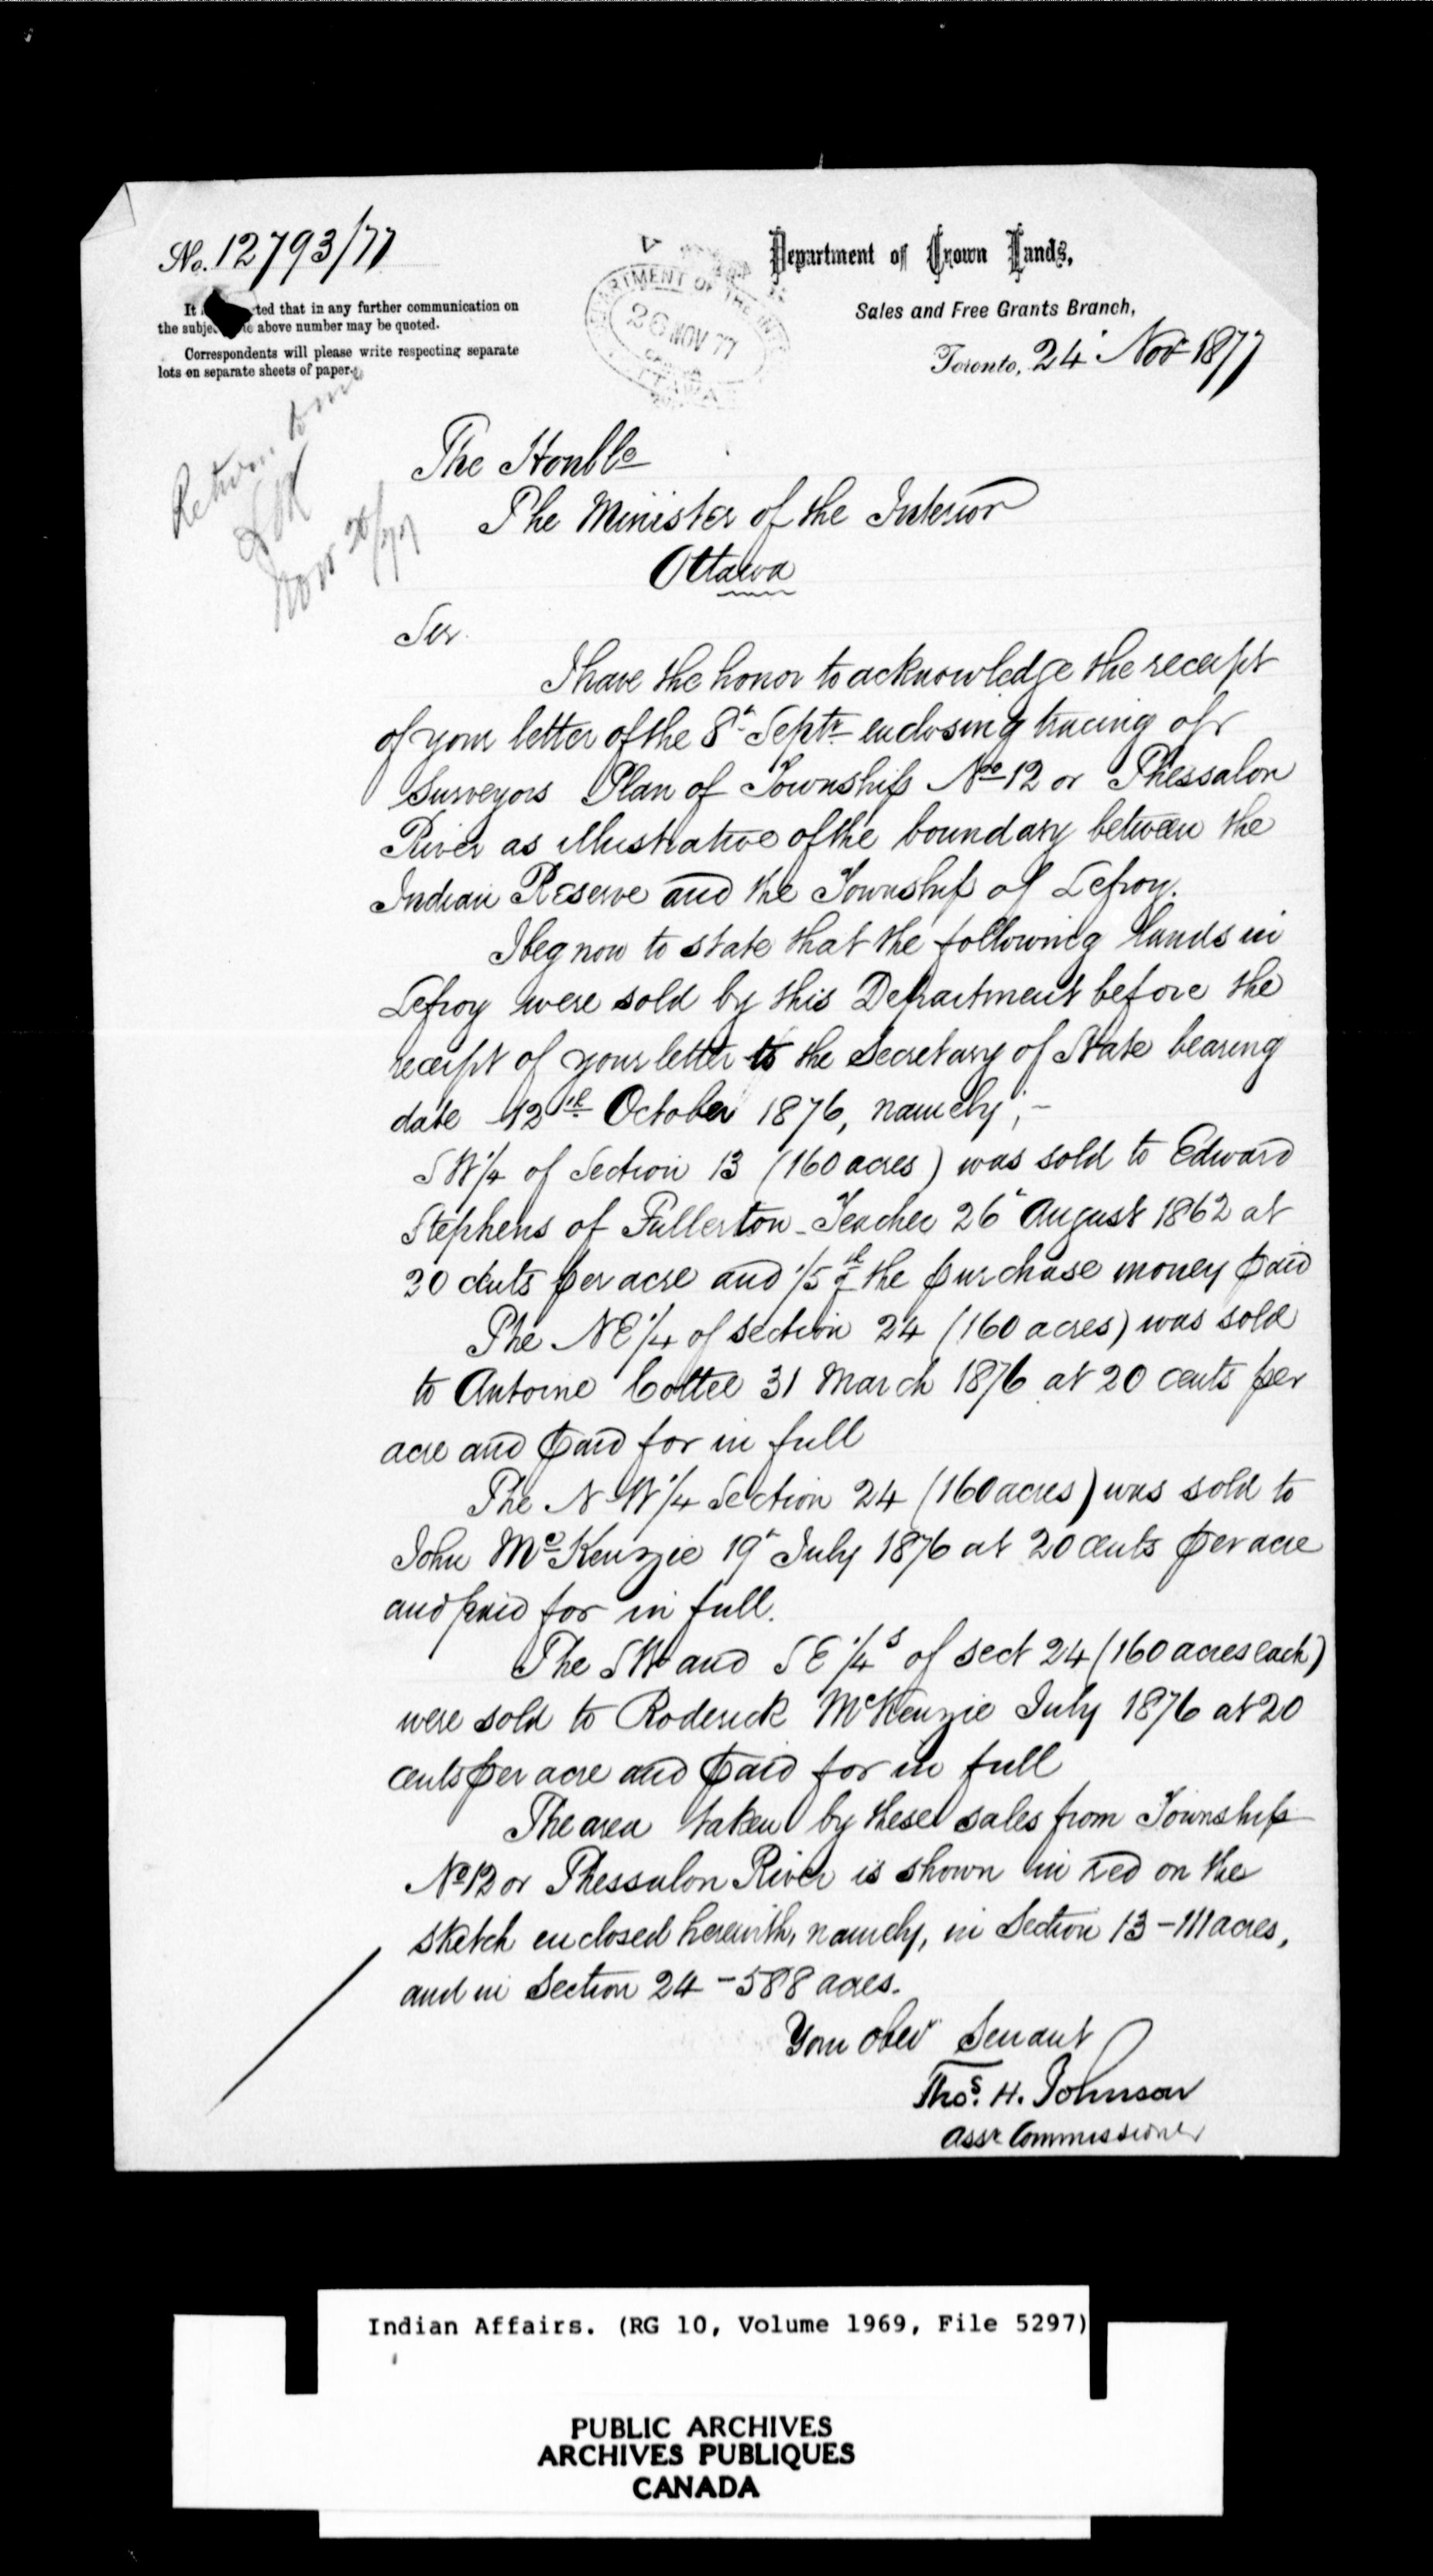 No. 12793/77
Department of Crown Lands,
Sales and Free Grants Branch,
Toronto, 24 Nov 1877
It is ted that in any further communication on
the subje above number may be quoted.
Correspondents will please write respecting separate
lots on separate sheets of paper.
DEPARTMENT OF THE INTERIOR
26 NOV 77
OTTAWA
Return to me
Nov 26/77
The Honble
The Minister of the Interior
Ottawa
Sir.
I have the honor to acknowledge the receipt
of your letter of the 8th Septr enclosing tracing of
Surveyors Plan of Township No 12 or Thessalon
River as illustrative of the boundary between the
Indian Reserve and the Township of Lefroy.
I beg now to state that the following lands in
Lefroy were sold by this Department before the
receipt of your letter to the Secretary of State bearing
date 12th October 1876, namely; -
SW 1/4 of Section 13 (160 acres) was sold to Edward
Stephens of Fullerton - Teacher 26th August 1862 at
20 cents per acre and 1/5th of the purchase money paid
The NE 1/4 of section 24 (160 acres) was sold
to Antoine Cottee 31 March 1876 at 20 cents per
acre and paid for in full
The N-W 1/4 Section 24 (160 acres) was sold to
John McKenzie 19th July 1876 at 20 cents per acre
and paid for in full.
The SW and SE 1/4s of sect 24 (160 acres each)
were sold to Roderick McKenzie July 1876 at 20
cents per acre and paid for in full
The area taken by these sales from Township
No 12 or Thessalon River is shown in red on the
sketch enclosed herewith, namely, in Section 13 - 111 acres,
and in Section 24 - 588 acres.
Your obedt Servant
Thos. H. Johnson
Asst Commissioner
Indian Affairs. (RG 10, Volume 1969, File 5297)
PUBLIC ARCHIVES
ARCHIVES PUBLIQUES
CANADA